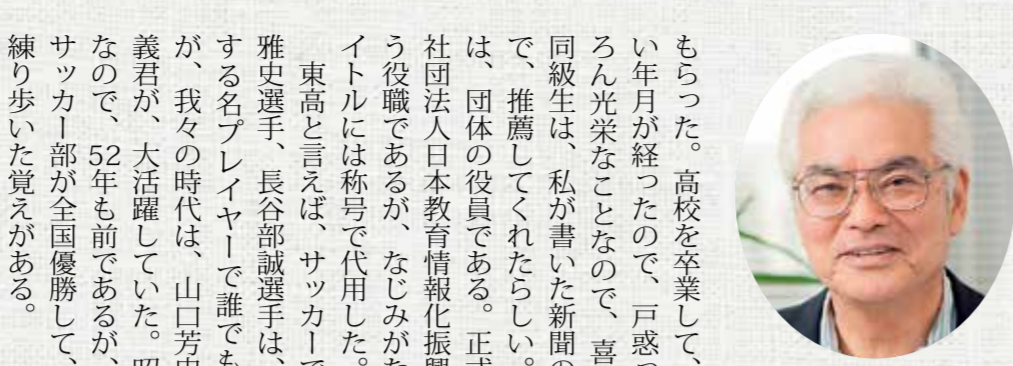 もらった。高校を卒業して、
い年月が経ったので、戸惑っ
ろん光栄なことなので、喜
同級生は、私が書いた新聞の
で、推薦してくれたらしい。
は、団体の役員である。正式
社団法人日本教育情報化振興
う役職であるが、なじみがた
イトルには称号で代用した。
東高と言えば、サッカーで
雅史選手、長谷部誠選手は、
する名プレイヤーで誰でも
が、我々の時代は、山口芳忠
義君が、大活躍していた。昭
なので、52年も前であるが、
サッカー部が全国優勝して、
練り歩いた覚えがある。